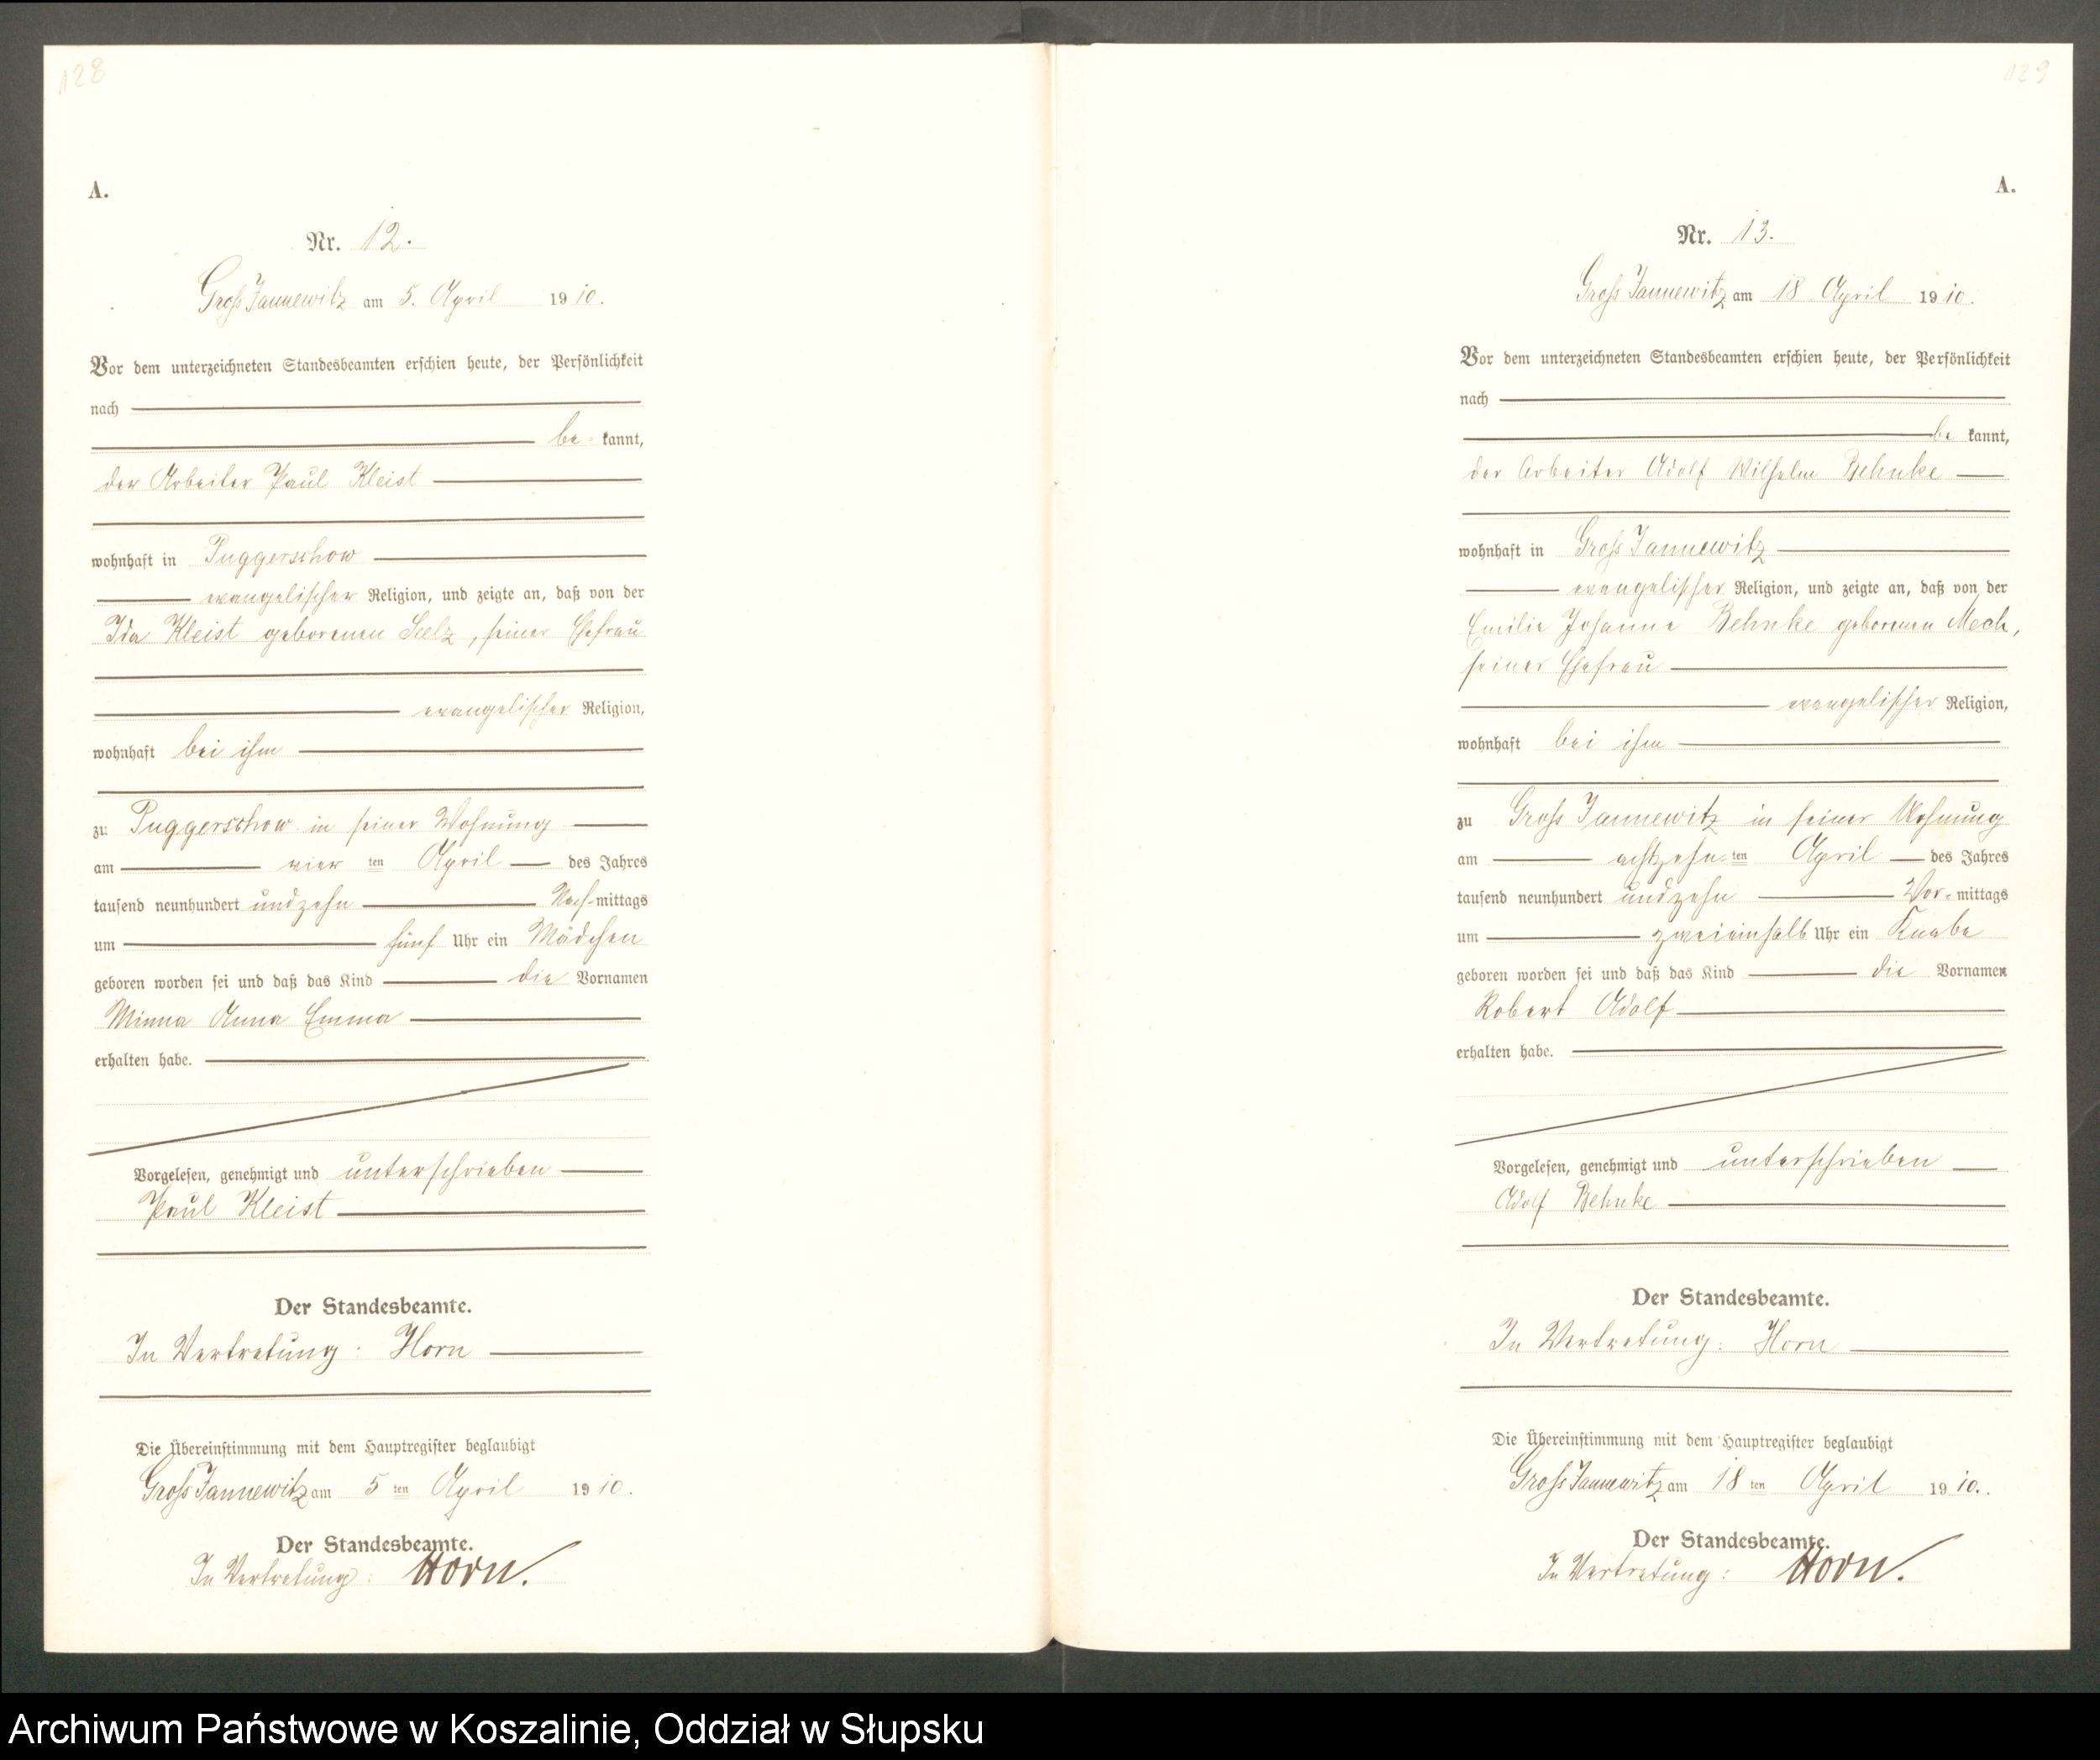 128
A.
Nr. 12.
Gross Jannewitz am 5. April 1910.
Vor dem unterzeichneten Standesbeamten erschien heute, der Persönlichkeit
nach
be kannt,
der Arbeiter Paul Kleist
wohnhaft in Puggerschow
evangelischer Religion, und zeigte an, daß von der
Ida Kleist geborenen Selz, seiner Ehefrau
evangelischer Religion,
wohnhaft bei ihm
zu Puggerschow in seiner Wohnung
am vier ten April des Jahres
tausend neunhundert undzehn Nach-mittags
um fünf Uhr ein Mädchen
geboren worden sei und daß das Kind die Vornamen
Minna Anna Emma
erhalten habe.
Vorgelesen, genehmigt und unterschrieben
Paul Kleist
Der Standesbeamte.
In Vertretung: Horn
Die Übereinstimmung mit dem Hauptregister beglaubigt
Gross Jannewitz am 5 ten April 1910.
Der Standesbeamte.
In Vertretung: Horn.
129
A.
Nr. 13.
Gross Jannewitz am 18 April 1910.
Vor dem unterzeichneten Standesbeamten erschien heute, der Persönlichkeit
nach
be kannt,
der Arbeiter Adolf Wilhelm Behnke
wohnhaft in Gross Jannewitz
evangelischer Religion, und zeigte an, daß von der
Emilie Johanne Behnke geborenen Mech,
seiner Ehefrau
evangelischer Religion,
wohnhaft bei ihm
zu Gross Jannewitz in seiner Wohnung
am achtzehn ten April des Jahres
tausend neunhundert undzehn Vor-mittags
um zweieinhalb Uhr ein Knabe
geboren worden sei und daß das Kind die Vornamen
Robert Adolf
erhalten habe.
Vorgelesen, genehmigt und unterschrieben
Adolf Behnke
Der Standesbeamte.
In Vertretung: Horn
Die Übereinstimmung mit dem Hauptregister beglaubigt
Gross Jannewitz am 18 ten April 1910.
Der Standesbeamte.
In Vertretung: Horn.
Archiwum Państwowe w Koszalinie, Oddział w Słupsku